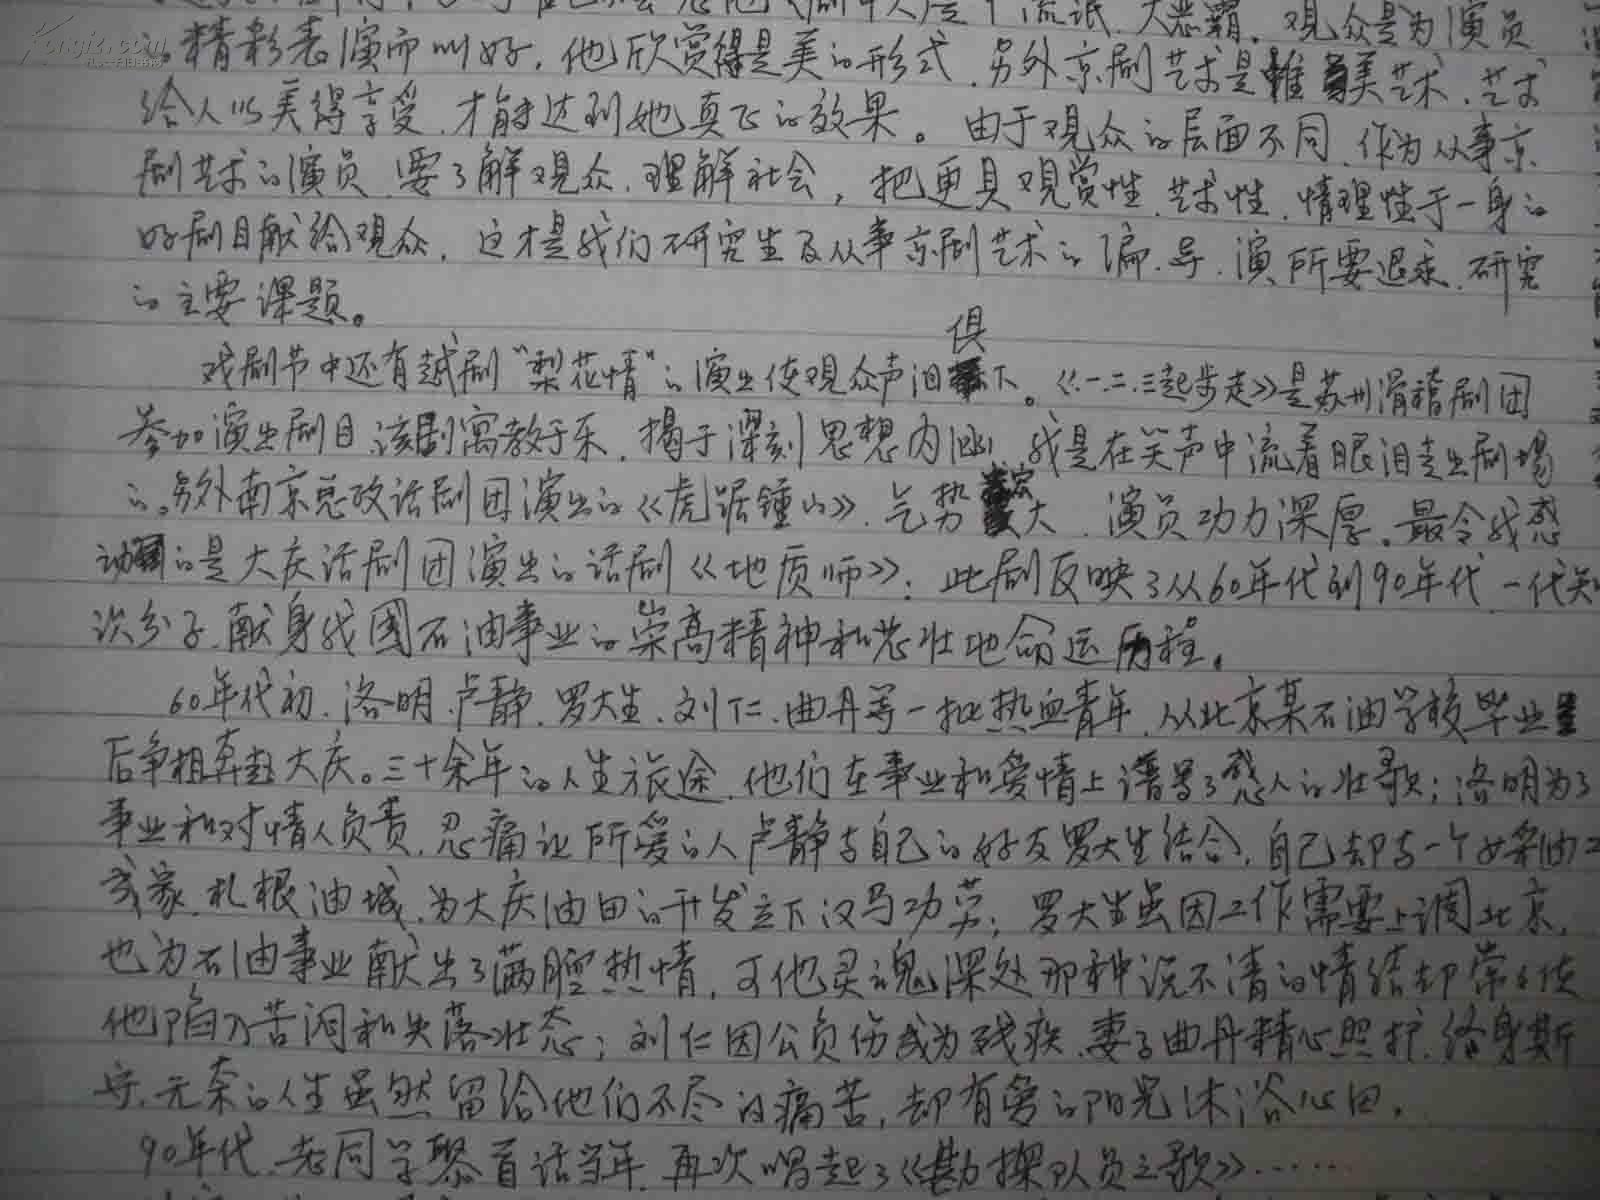 大恶霸。观众是为演员
的精彩表演而叫好,他欣赏得是美的形式,另外京剧艺术是唯美艺术,艺术
给人以美得享受,才能达到她真正的效果。由于观众的层面不同,作为从事京
剧艺术的演员,要了解观众,理解社会,把更具观赏性,艺术性,情理性于一身的
好剧目献给观众,这才是我们研究生及从事京剧艺术的编、导、演所要追求、研究
的主要课题。
俱
戏剧节中还有越剧“梨花情”的演出使观众声泪下。《一.二.三起步走》是苏州滑稽剧团
参加演出剧目,该剧寓教于乐,揭于深刻思想内涵,我是在笑声中流着眼泪走出剧场
的。另外南京总政话剧团演出的《虎踞锺山》,气势宏大,演员功力深厚。最令我感
动的是大庆话剧团演出的话剧《地质师》;此剧反映了从60年代到90年代,一代知
识分子,献身我國石油事业的崇高精神和悲壮地命运历程。
60年代初,洛明、卢静、罗大生、刘仁、曲丹等一批热血青年,从北京某石油学校毕业
后争相奔赴大庆。三十余年的人生旅途,他们在事业和爱情上谱写了感人的壮歌;洛明为了
事业和对情人负责,忍痛让所爱的人卢静与自己的好友罗大生结合,自己却与一个女采油工
成家,扎根油城,为大庆油田的开发立下汉马功劳;罗大生虽因工作需要上调北京,
也为石油事业献出了满腔热情,可他灵魂深处那种说不清的情结却常々使
他陷入苦闷和失落状态;刘仁因公负伤成为残疾,妻子曲丹精心照护,终身厮
守,无奈的人生虽然留给他们不尽的痛苦,却有爱的阳光沐浴心田。
90年代,老同学聚首话当年,再次唱起了《勘探队员之歌》……